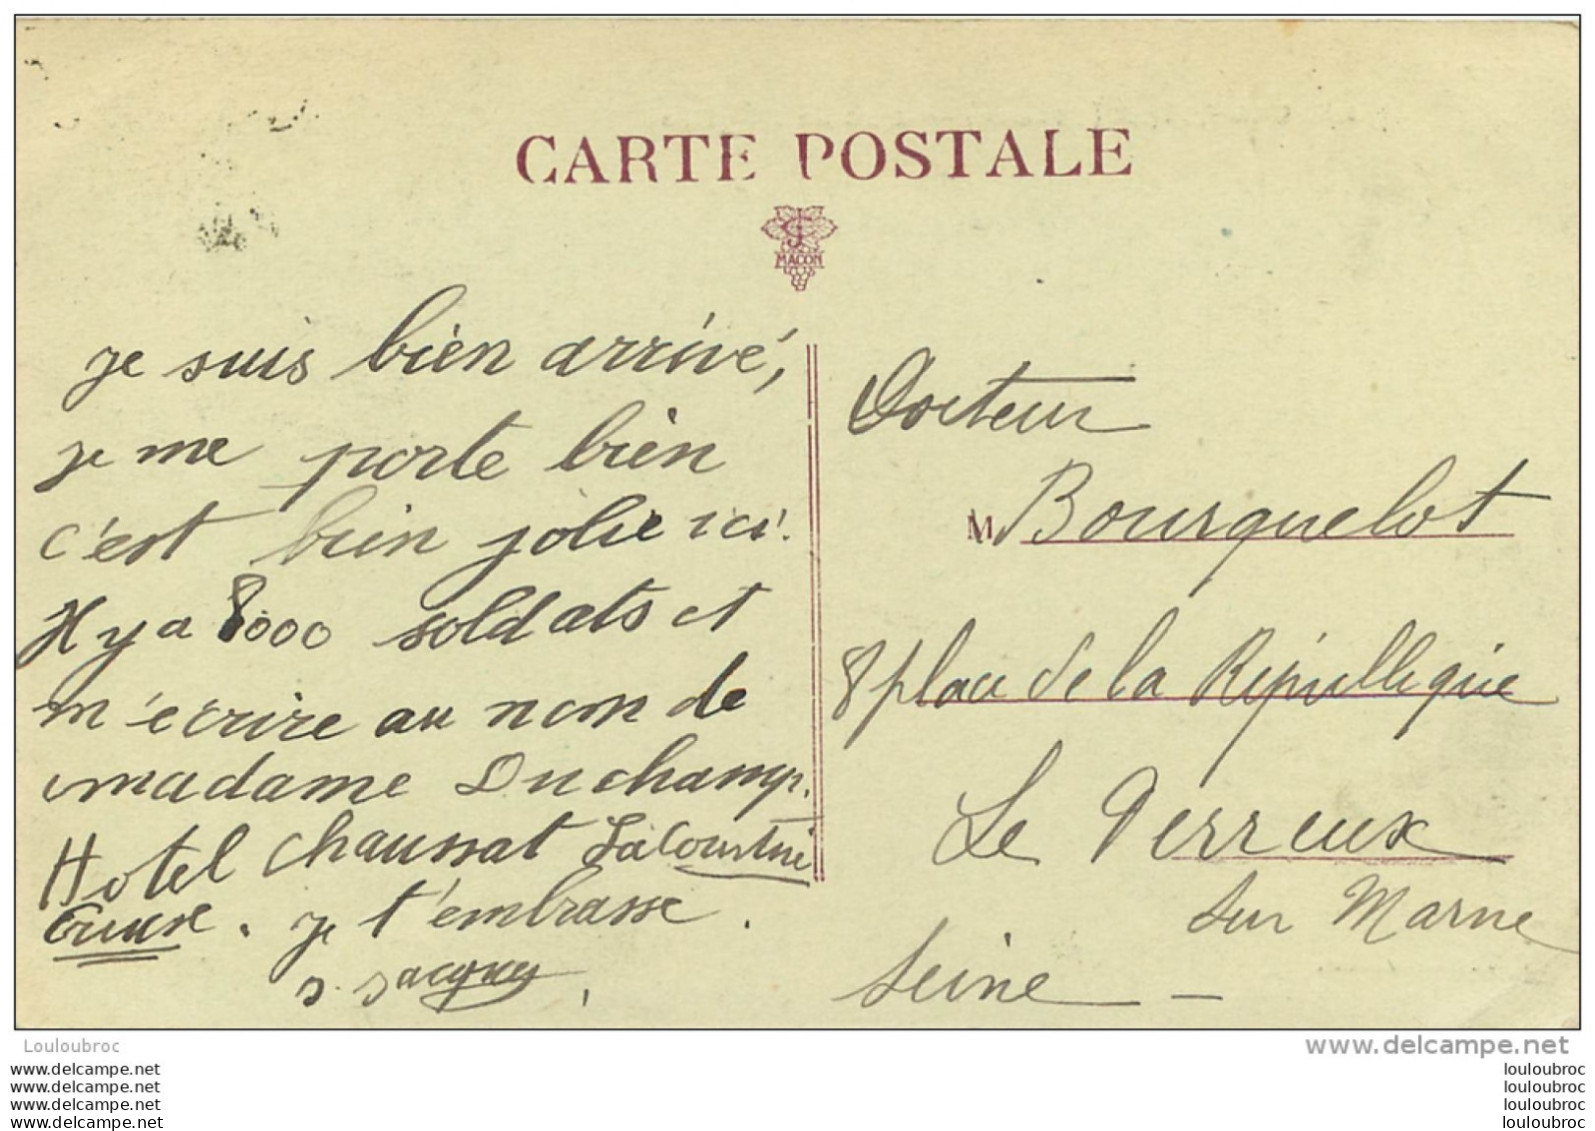 CARTE POSTALE
JC
MACON
je suis bien arrivé,
je me porte bien
c'est bien jolie ici.
Il y a 8000 soldats et
m'écrire au nom de
madame Duchamp.
Hotel Chaussat Lacourtine
Creuse. je t'embrasse.
Jacques
Docteur
M Bourquelot
8 place de la République
Le Perreux
sur Marne
Seine
Louloubroc
www.delcampe.net
www.delcampe.net
www.delcampe.net
www.delcampe.net
www.delcampe.net
louloubroc
louloubroc
louloubroc
louloubroc